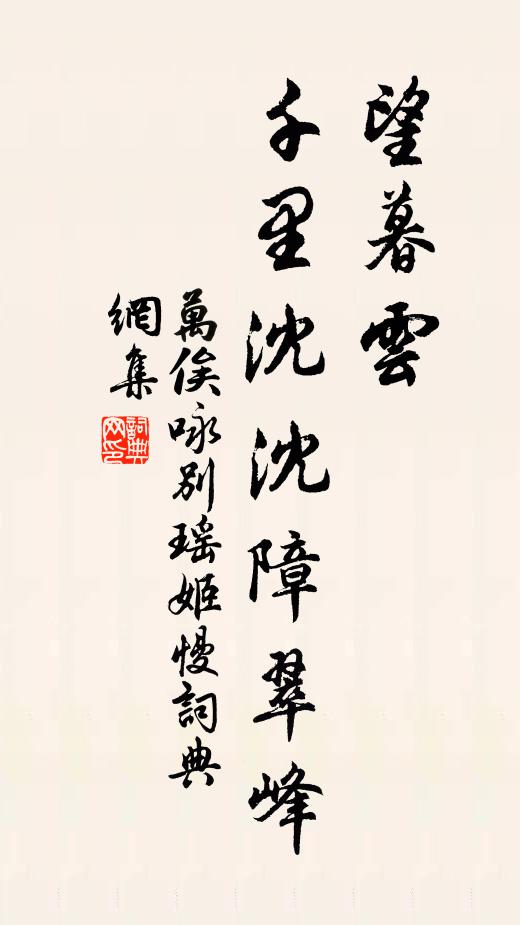 望暮雲
千里沈沈障翠峰
萬俟咏别瑶姬慢詞典
網集
詞典
网印